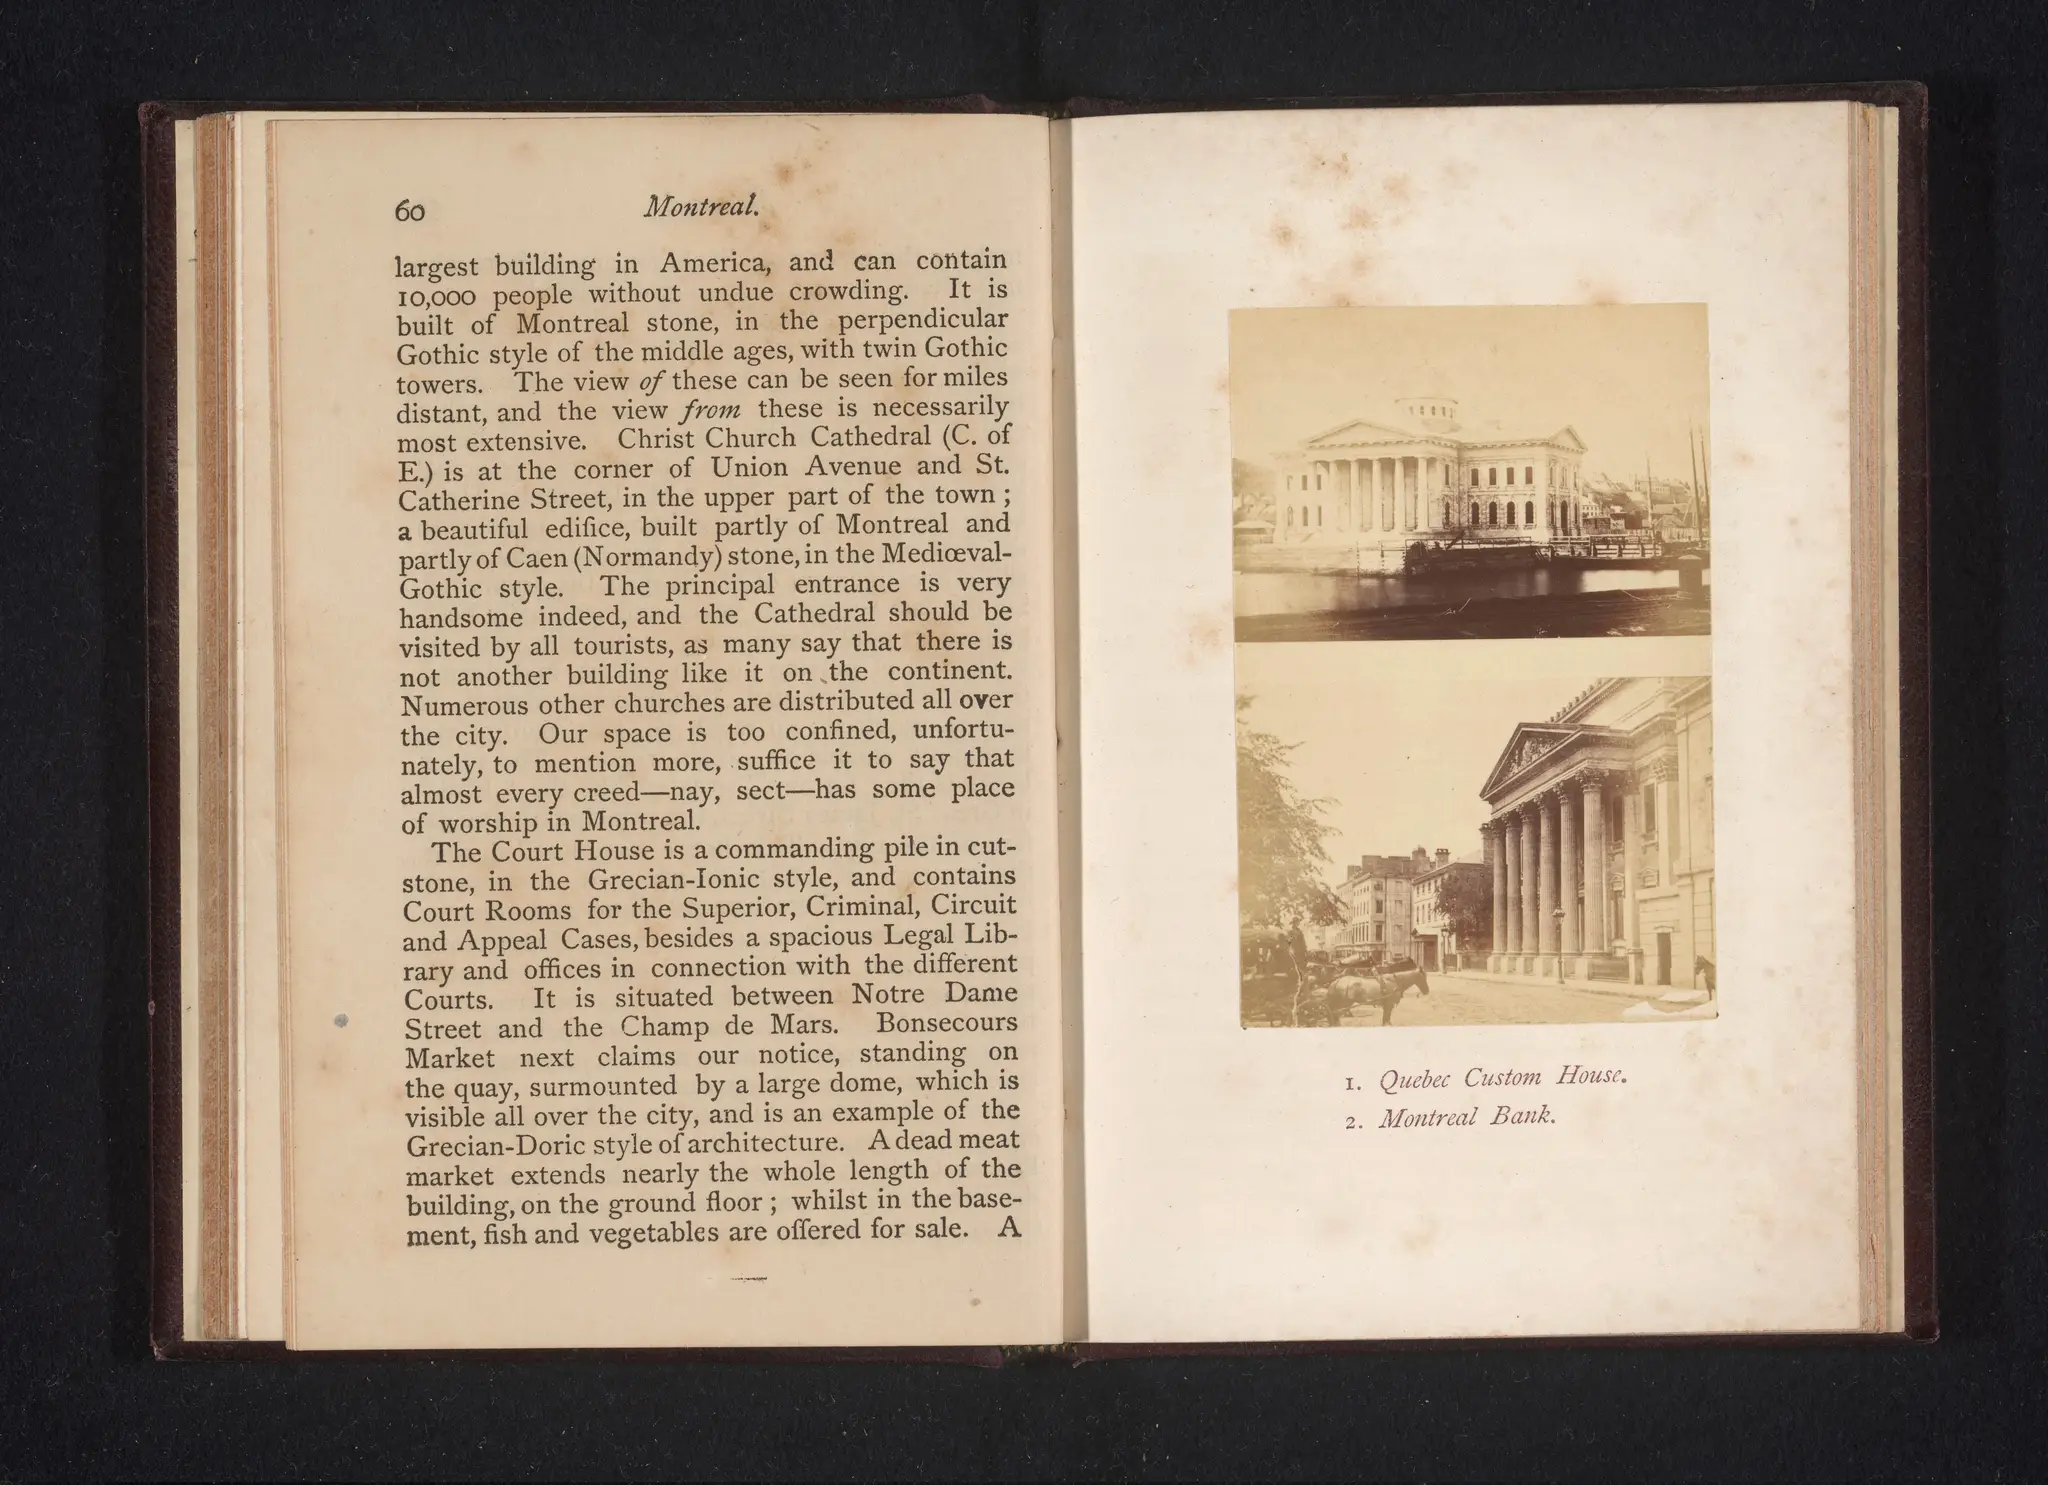 60
Montreal.
largest building in America, and can contain
10,000 people without undue crowding. It is
built of Montreal stone, in the perpendicular
Gothic style of the middle ages, with twin Gothic
towers. The view of these can be seen for miles
distant, and the view from these is necessarily
most extensive. Christ Church Cathedral (C. of
E.) is at the corner of Union Avenue and St.
Catherine Street, in the upper part of the town ;
a beautiful edifice, built partly of Montreal and
partly of Caen (Normandy) stone, in the Mediœval-
Gothic style. The principal entrance is very
handsome indeed, and the Cathedral should be
visited by all tourists, as many say that there is
not another building like it on the continent.
Numerous other churches are distributed all over
the city. Our space is too confined, unfortu-
nately, to mention more, suffice it to say that
almost every creed—nay, sect—has some place
of worship in Montreal.
The Court House is a commanding pile in cut-
stone, in the Grecian-Ionic style, and contains
Court Rooms for the Superior, Criminal, Circuit
and Appeal Cases, besides a spacious Legal Lib-
rary and offices in connection with the different
Courts. It is situated between Notre Dame
Street and the Champ de Mars. Bonsecours
Market next claims our notice, standing on
the quay, surmounted by a large dome, which is
visible all over the city, and is an example of the
Grecian-Doric style of architecture. A dead meat
market extends nearly the whole length of the
building, on the ground floor ; whilst in the base-
ment, fish and vegetables are offered for sale. A
1. Quebec Custom House.
2. Montreal Bank.